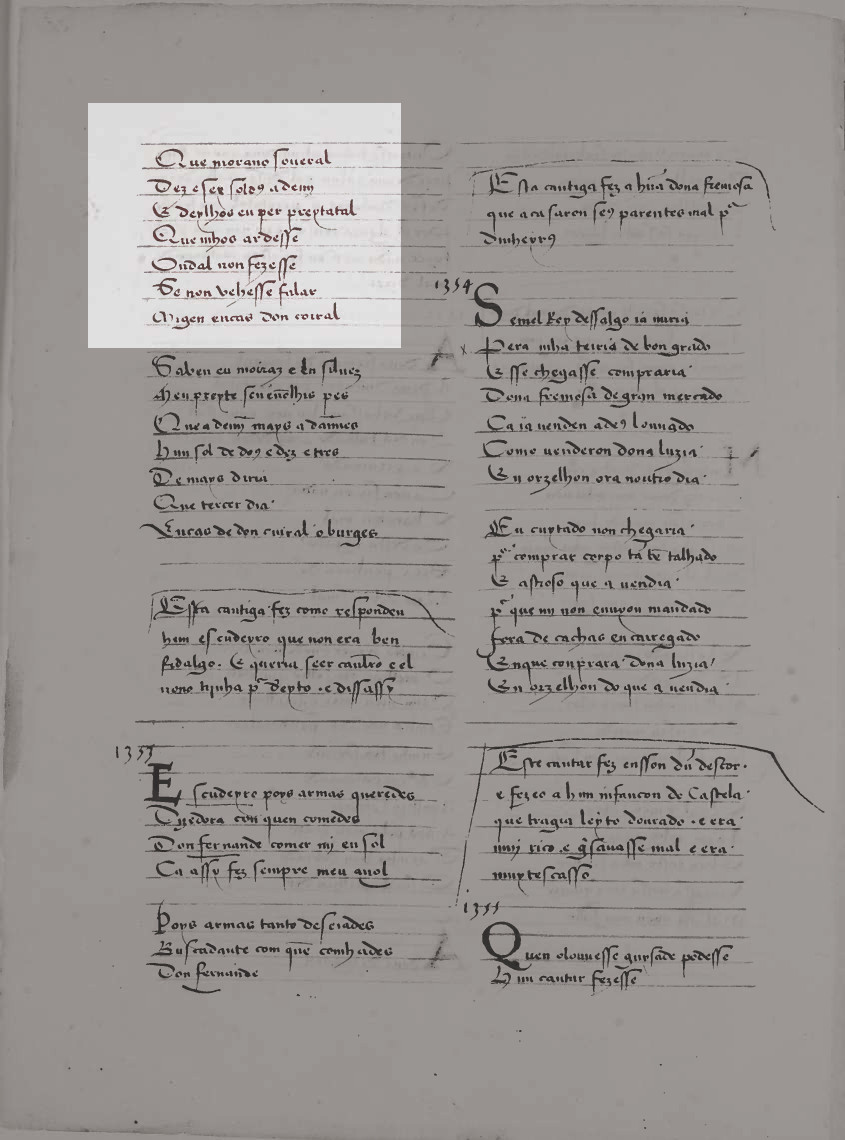 Que morano soueral
Dez e sex soldꝯ a demj
E deylhos eu per preytatal
Que mhos ardesse
Ondal non fezesse
Se non vehesse falar
Migen encas don coiral
Saben eu moiraz e
Heu preyte
Que ademj mays a
hun sol de doꝯ e dez e tres
De mays diria
Que tercer dia
Encas de don cuiral o burges
Essta cantiga fez como responden
hum escudeyro que non era ben
fidalgo. E queria seer caualro e el
nono tijnha
1353
Escudeyro poys armas queredes
Dizedora con quen comedes
Don fernande comer mi eu sol
Ca assy fez sempre meu auol
Poys armas tanto deseiades
Buscadante com que comhades
Don fernande
Esta cantiga fez a hũa dona fremosa
que a casaron seꝯ parentes mal p
dinheyrꝯ
1354
Semel Rey dessalgo ia miria
Pera mha teiria de bon grado
E sse chegasse compraria
Dona fremosa de gran mercado
Ca ia uenden a deꝯ louuado
Como uenderon dona luzia
En orzelhon ora noutro dia
Eu cuytado non chegaria
p comprar corpo tã bẽ talhado
E astroso que a uendia
p que mj non enuyou mandado
fora de cachas encarregado
Enque conprara dona luzia
En orzelhon do que a uendia
Este cantar fez ensson dũ descor
e fezeo a hun infancon de Castela
que tragia leyto dourado. e era
muj rico. e gˢauasse mal e era
muytescasso
1355
Quen olouuesse guysade podesse
Hun cantar fezesse